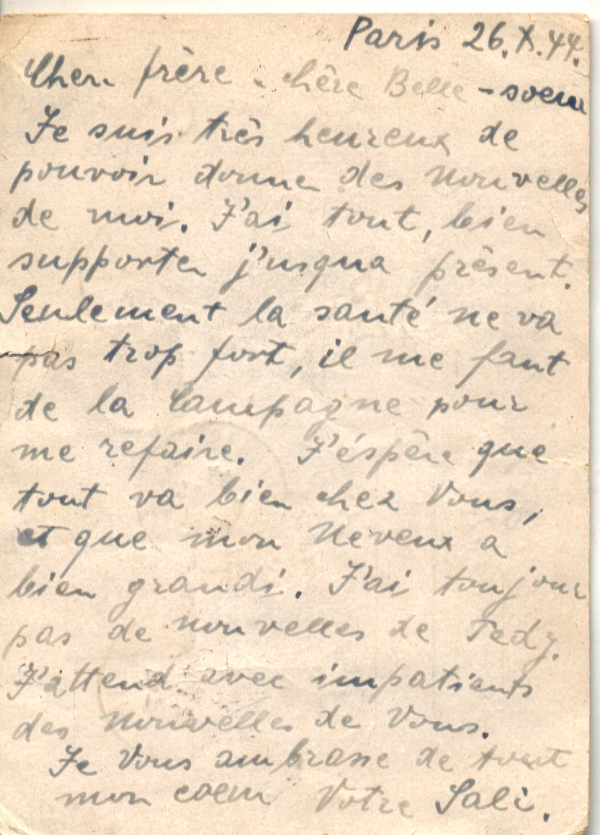 Paris 26.X.44.
Cher frère - chère Belle-soeur
Je suis très heureux de
pouvoir donner des nouvelles
de moi. J'ai tout, bien
supporter j'usqua présent.
Seulement la santé ne va
pas trop fort, il me faut
de la Campagne pour
me refaire. J'éspère que
tout va bien chez Vous,
et que mon Neveux a
bien grandi. J'ai toujour
pas de nouvelles de Fedy.
J'attend avec impatients
des Nouvelles de Vous.
Je Vous ambrasse de tout
mon coeur Votre Sali.